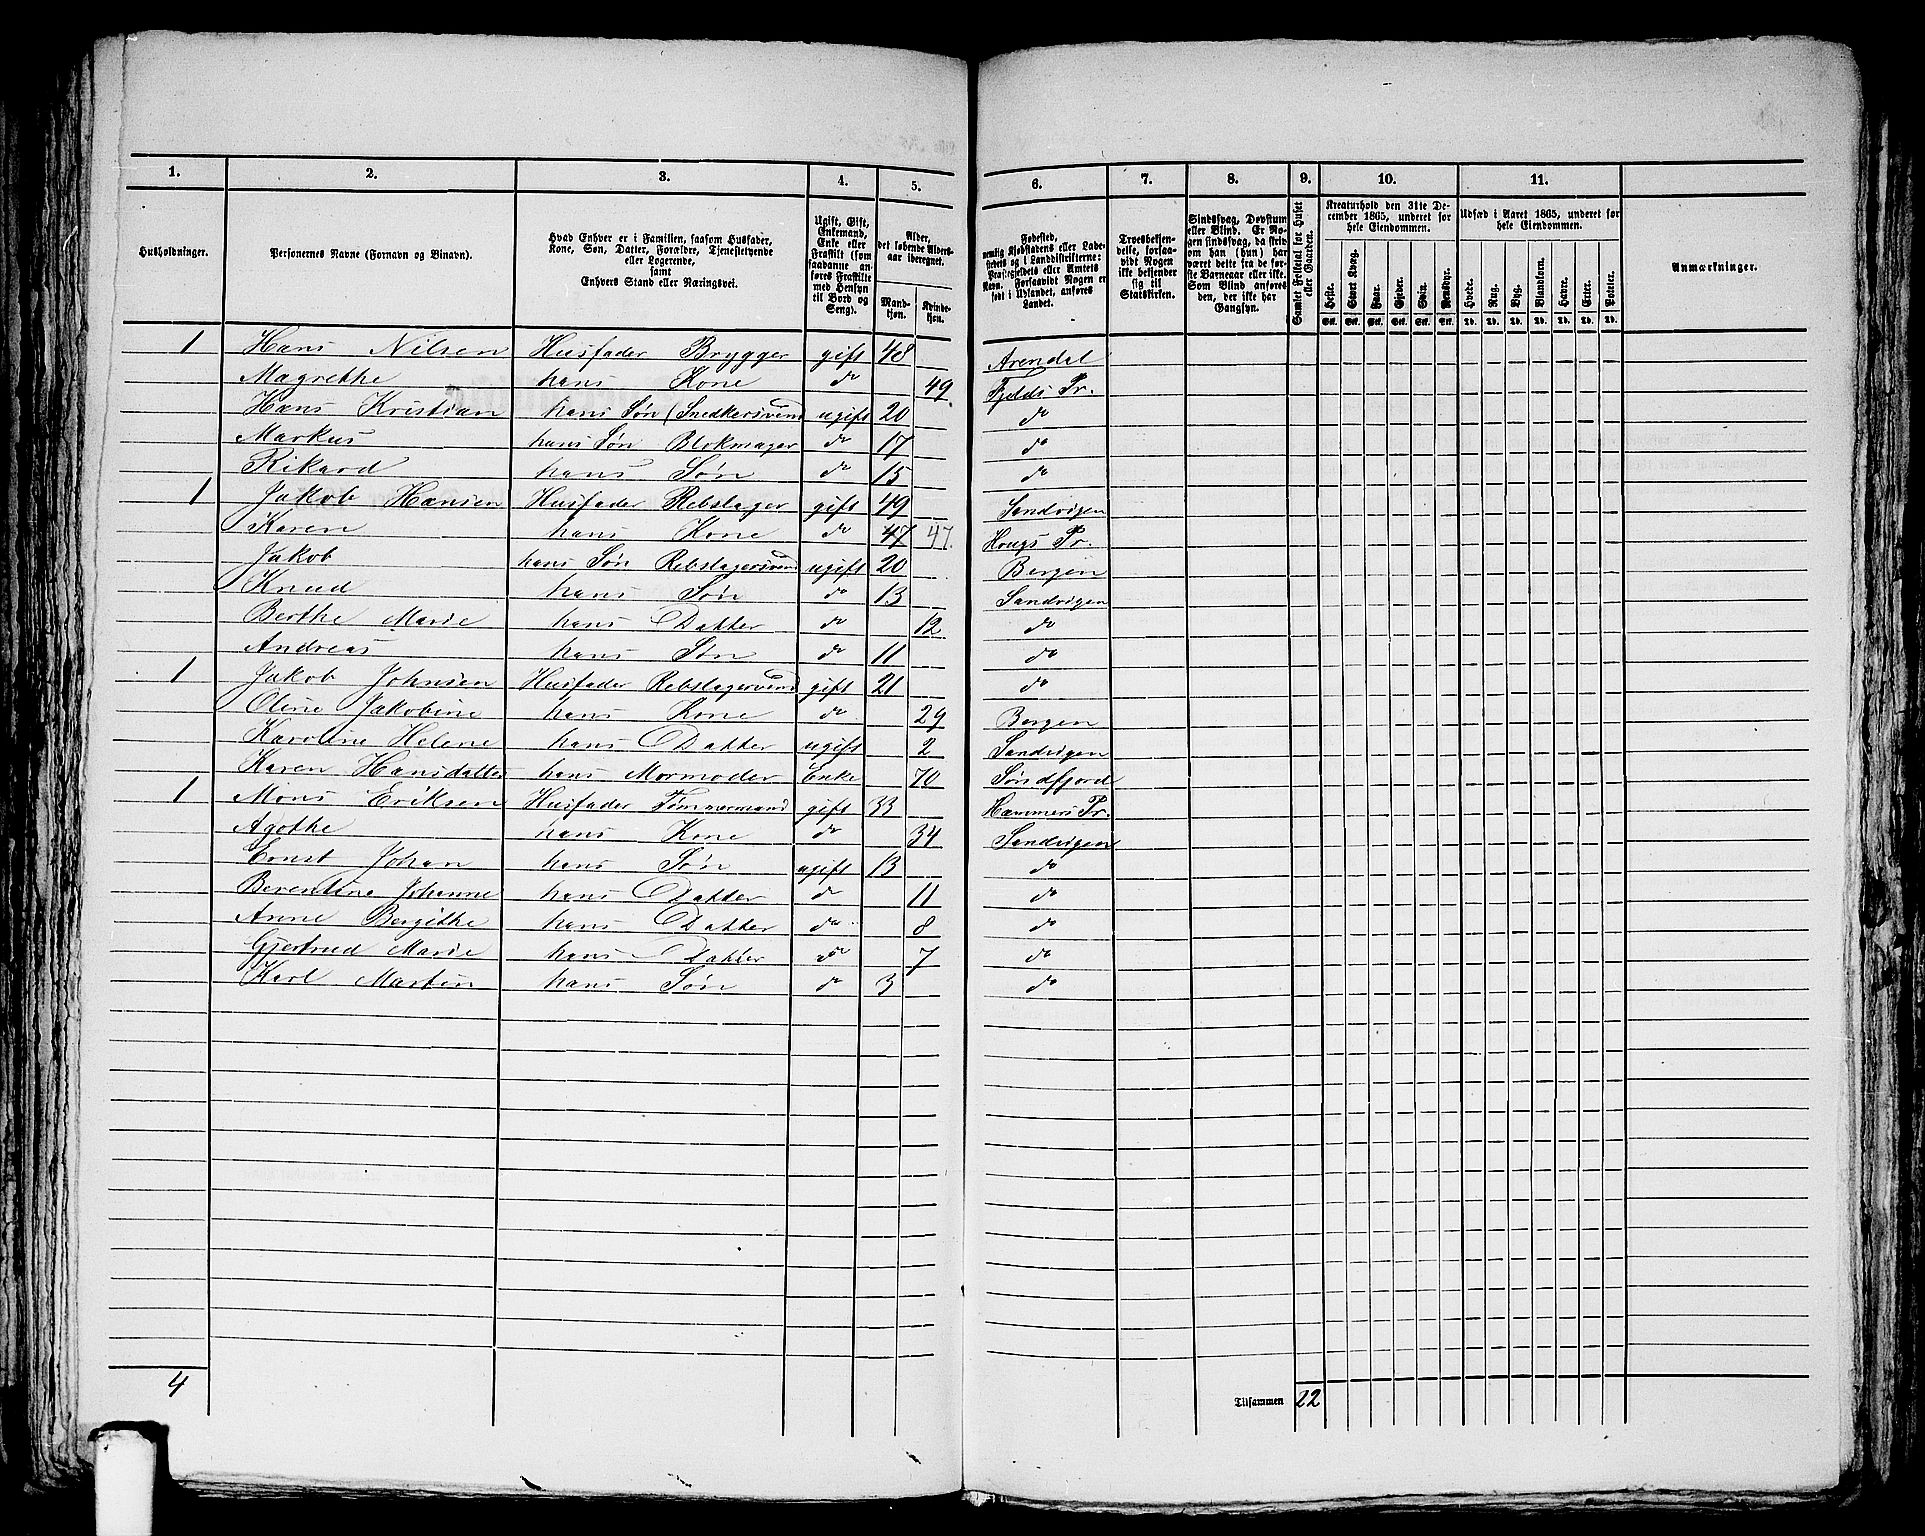 1. 2. 3. 4. 5. 6. 7. 8. 9. 10. 11.
Husholdninger.
Personernes Navne (Fornavn og Binavn).
Hvad Enhver er i Familien, saasom Husfader,
Kone, Søn, Datter, Forældre, Tjenestetyende
eller Logerende,
samt
Enhvers Stand eller Næringsvei.
Ugift, Gift,
Enkemand,
Enke eller
Fraskilt (som
saadanne an-
føres Fraskilte
med Hensyn
til Bord og
Seng).
Alder,
det løbende Alders-
aar iberegnet.
Mand-
kjøn.
Kvinde-
kjøn.
Fødested,
nemlig Kjøbstadens eller Lade-
stedets og i Landdistrikterne:
Præstegjeldets eller Amtets
Navn. Forsaavidt Nogen er
født i Udlandet, anføres
Landet.
Troesbekjen-
delse, forsaa-
vidt Nogen
ikke bekjender
sig til
Statskirken.
Sindssvag, Døvstum
eller Blind. Er No-
gen sindssvag, da skriv
om han (hun) har
været dette fra de før-
ste Barneaar eller ikke.
Som Blind anføres
den, der ikke har
Gangsyn.
Samlet Folketal for Huset
eller Gaarden.
Kreaturhold den 31te De-
cember 1865, underet for
hele Eiendommen.
Heste. Stort Kvæg. Faar. Gjeder. Svin. Rensdyr.
Stk. Stk. Stk. Stk. Stk. Stk.
Udsæd i Aaret 1865, underet for
hele Eiendommen.
Hvede. Rug. Byg. Blandkorn. Havre. Erter. Poteter.
Td. Td. Td. Td. Td. Td. Td.
Anmærkninger.
1 Hans Nilsen Husfader Brygger gift 48 Arendal
Magrethe hans Kone do 49. Fjelds Pr.
Hans Kristian hans Søn (Snedkersvend ugift 20 do
Markus hans Søn Blokmager do 17 do
Rikard hans Søn do 15 do
1 Jakob Hansen Husfader Rebslager gift 49 Sandvigen
Karen hans Kone do 47 47. Hougs Pr.
Jakob hans Søn Rebslagersvend ugift 20 Bergen
Knud hans Søn do 13 Sandvigen
Berthe Marie hans Datter do 12 do
Andreas hans Søn do 11 do
1 Jakob Johnsen Husfader Rebslagersvend gift 21 do
Oline Jakobine hans Kone do 29 Bergen
Karoline Helene hans Datter ugift 2 Sandvigen
Karen Hansdatter hans Mormoder Enke 70 Søndfjord
1 Mons Eriksen Husfader Tømmermand gift 33 Hammers Pr.
Agothe hans Kone do 34 Sandvigen
Ernst Johan hans Søn ugift 13 do
Berentine Johanne hans Datter do 11 do
Anne Bergithe hans Datter do 8 do
Gjertrud Marie hans Datter do 7 do
Karl Martin hans Søn do 3 do
4 Tilsammen 22